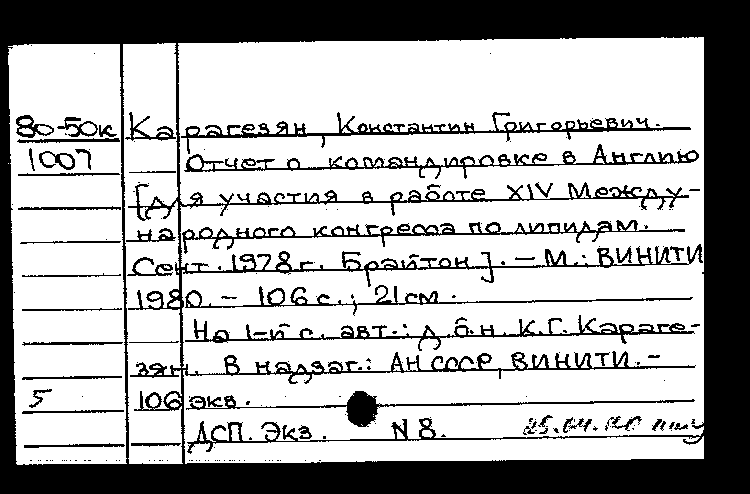 80-50к Карагезян, Константин Григорьевич.
1007 Отчет о командировке в Англию
[для участия в работе XIV Между-
народного конгресса по липидам.
Сент. 1978г. Брайтон]. - М.: ВИНИТИ
1980. - 106 с.; 21 см.
На 1-й с. авт.: д.б.н. К.Г. Караге-
зян. В надзаг.: АН СССР, ВИНИТИ. -
5 106 экз.
ДСП. Экз. N 8.